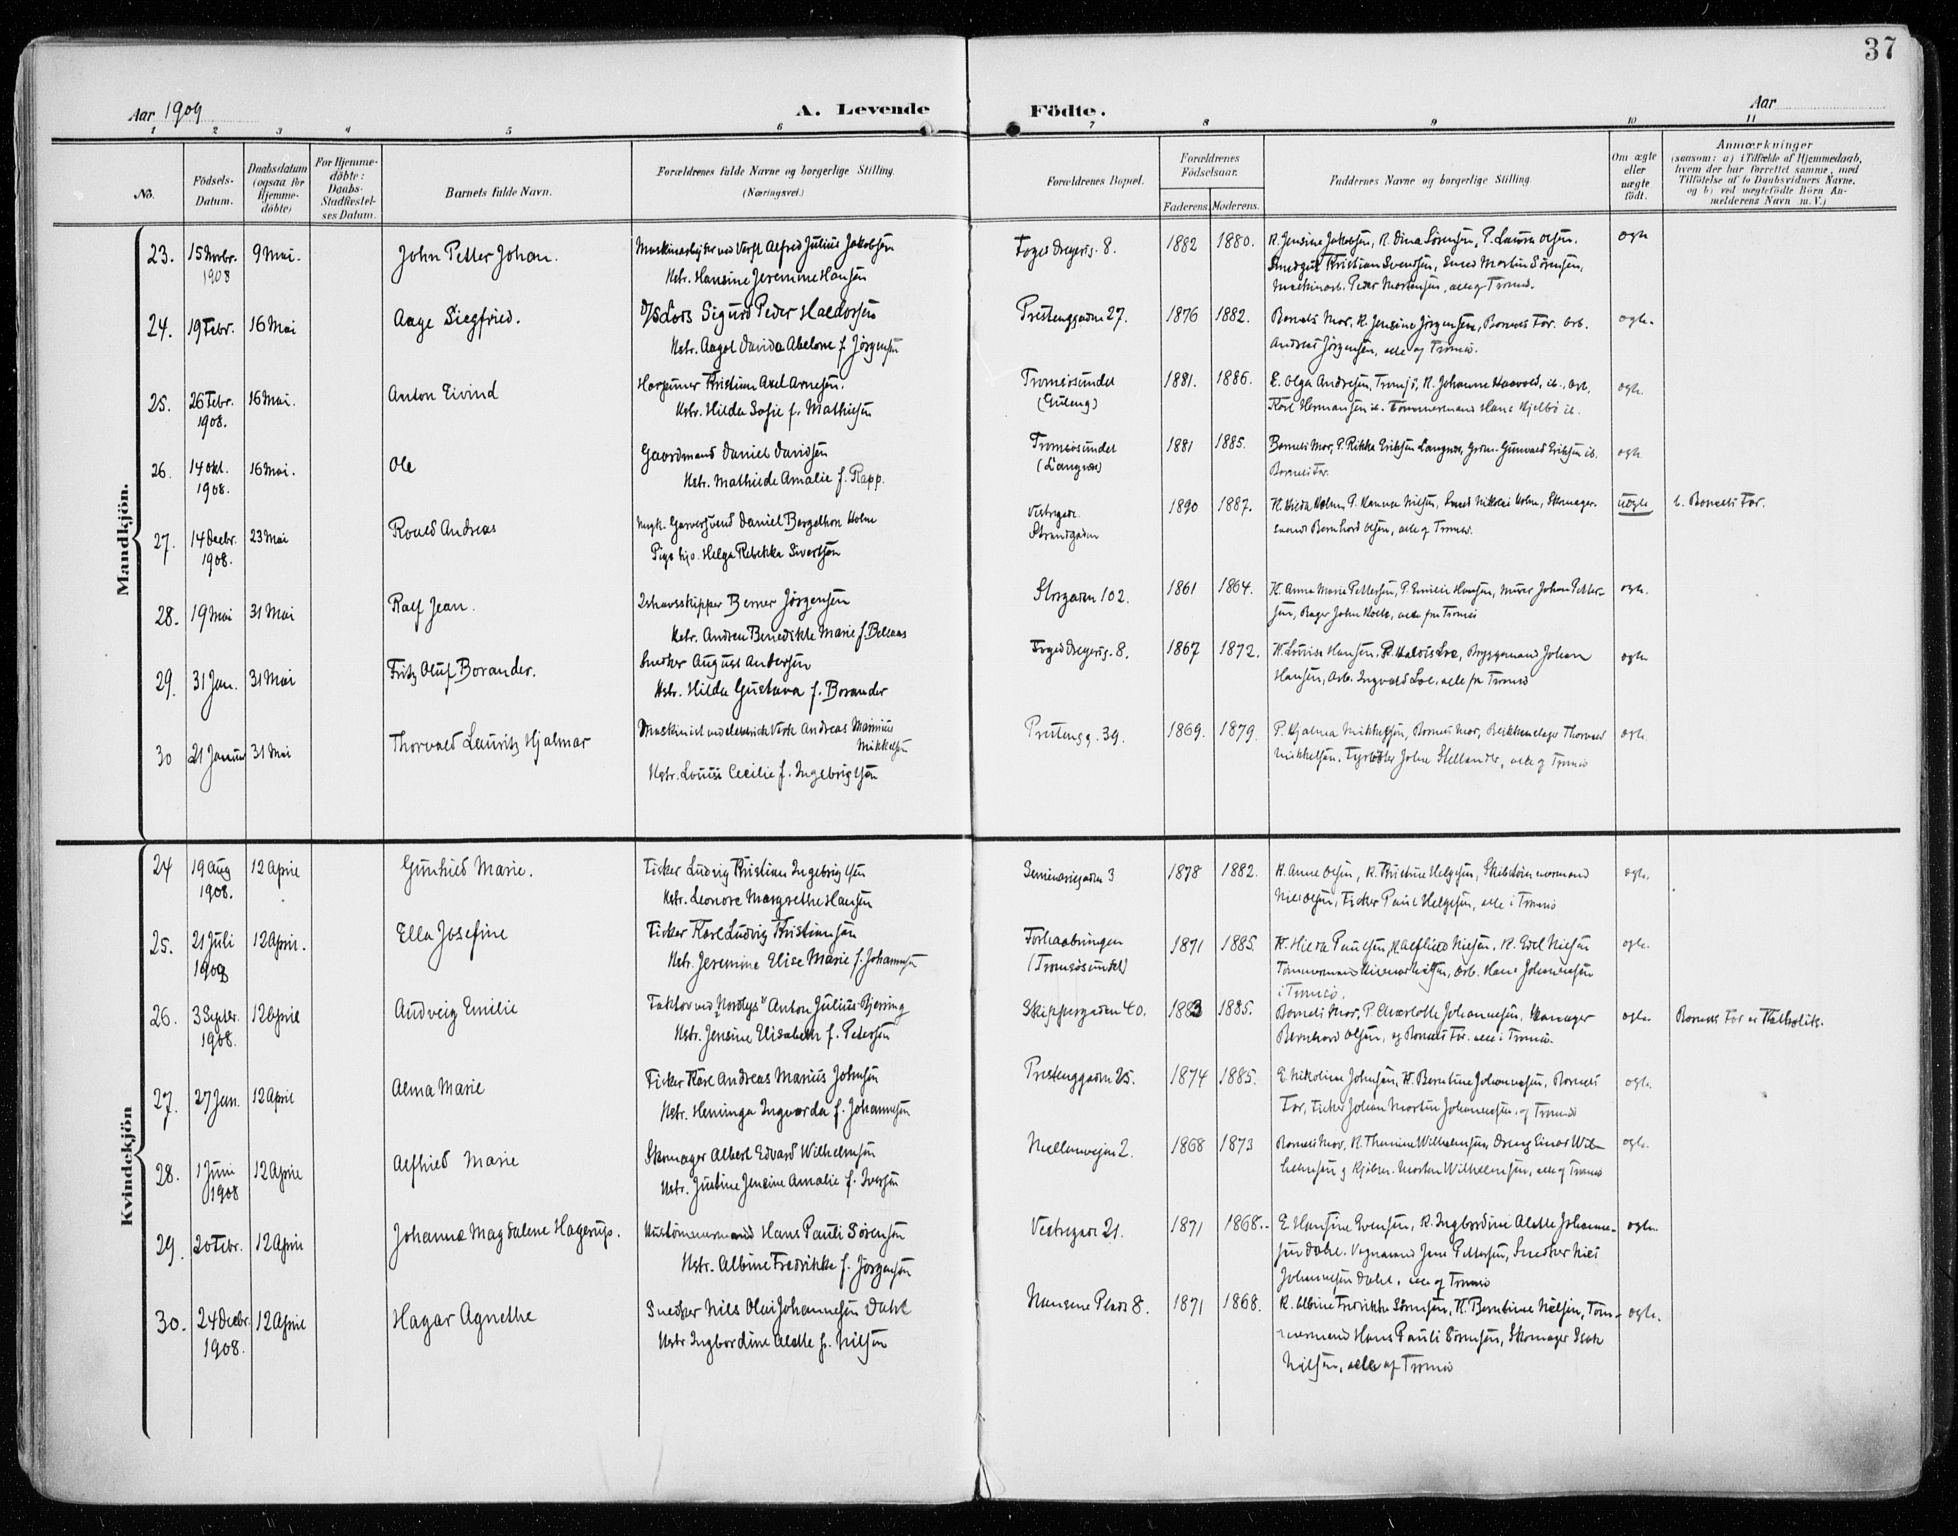 37
Aar 1909
A. Levende Födte.
Aar
1 2 3 4 5 6 7 8 9 10 11
No.
Födsels-Datum.
Daabsdatum (ogsaa for Hjemme-döbte)
For Hjemme-döbte: Daabs-Stadfæstel-ses Datum.
Barnets fulde Navn.
Forældrenes fulde Navne og borgerlige Stilling (Næringsvei.)
Forældrenes Bopæl.
Forældrenes Födselsaar.
Faderens. Moderens.
Faddernes Navne og borgerlige Stilling.
Om ægte eller uægte födt.
Anmærkninger
(saasom: a) i Tilfælde af Hjemmedaab,
hvem der har forrettet samme, med
Tilföielse af to Daabsvidners Navne,
og b) ved uægtefödte Börn An-
melderens Navn m. V.)
Mandkjön.
23. 15 Novbr. 9 Mai. John Petter Johan. Maskinarbeider ved Verft Alfred Julius Jakobsen Foged Dreyersg. 8. 1882 1880. K. Jensine Jakobsen, K. Dina Sørensen, P. Laura Olsen, egte
1908 Hstr. Hansine Jeremine Hansen Kristian Svendsen, Smed Martin Sørensen,
Maskinarb. Peder Mortensen, alle af Tromsö.
24. 19 Febr. 16 Mai Aage Siegfried. D/S Lods Sigurd Peder Haldorsen Prestenggaden 27. 1876 1882. Barnets Mor, K. Jensine Jørgensen, Barnets Far. Arb. egte.
Hstr. Aagot Davida Abelone f. Jørgensen Andreas Jørgensen, alle af Tromsö.
25. 26 Febr. 16 Mai. Anton Eivind Harpuner Kristian Axel Arnesen. Tromsösundet 1881. 1886. E. Olga Andresen, Tromsö, K. Johanne Haavold, ib., Arb. egte.
1908. Hstr. Hilda Sofie f. Mathisen Karl Hermansen ib. Tømmermand Hans Kjelbö ib.
26. 14 Okt. 16 Mai. Ole Gaardmand Daniel Davidsen Tromsösundet 1881 1885. Barnets Mor, P. Rikka Eriksen Langnes, Grdm. Gunvald Eriksen ib. egte
1908. Hstr. Mathilde Amalie f. Rapp. (Langnes) Barnets Far.
27. 14 Decbr. 23 Mai Roald Andreas Ungk. Garversvend Daniel Bergethon Holm Vestregade. 1890 1887. K. Hilda Holm, P. Hanna Nilsen, Smed Nikolai Holm, Skomager- uegte b. Barnets Far.
1908. Pige Helga Rebekka Sivertsen Strandgaden svend Bernhard Olsen, alle af Tromsö.
28. 19 Mai 31 Mai Ralf Jean. Ishavsskipper Berner Jörgensen Storgaden 102. 1861 1864. K. Anna Marie Pettersen, P. Emilie Hansen, Murer Johan Petter- egte.
Hstr. Andrea Benedikte Marie f. Bellaas sen, Bager John Holte, alle fra Tromsö
29. 31 Jan. 31 Mai Fritz Oluf Borander. Snedker August Andersen Foged Dreyersg. 8. 1867 1872. K. Louise Hansen, Bryggemand Johan egte
Hstr. Hilda Gustava f. Borander Hansen, Arb. Ingvald Loe, alle fra Tromsö
30 21 Januar 31 Mai Thorvald Lauritz Hjalmar Maskinist ved elektrisk Verk Andreas Marinius Prestengg. 39. 1869. 1879. P. Hjalma Mikkelsen, Barnets Mor, Thorvald egte.
Mikkelsen Mikkelsen. John Stellander, alle af Tromsö
Hstr. Louise Cecilie f. Ingebrigtsen
Kvindekjön
24 19 Aug 12 April Gunhild Marie. Fisker Ludvig Kristian Ingebrigtsen Seminariegaden 3 1878 1882. K. Anna Olsen, K. Kristine Helgesen, Skibstömmermand egte.
1908. Hstr. Leonore Margrethe Hansen Nils Olsen, Fisker Paul Helgesen, alle i Tromsö
25. 21 Juli 12 April. Ella Josefine Fisker Karl Ludvig Kristiansen Forhaabningen 1871 1885. K. Hilda Paulsen, K. Alfhild Nilsen, K. Edel Nilsen egte.
1908 Hstr. Jeremine Elise Marie f. Johannsen (Tromsösundet) Tömmermand Nilsen, Arb. Hans Johannesen
i Tromsö.
26. 3 Septbr. 12 April Andveig Emilie Faktor ved "Nordlys" Anton Julius Bjerring Skippergaden 40. 1883 1885. Barnets Mor, P. Charlotte Johannesen, Skomager egte. Barnets Far er Katholik.
1908. Hstr. Jensine Elisabeth f. Petersen Bernhard Olsen, og Barnets Far. alle i Tromsö.
27. 27 Jan. 12 April Alma Marie Fisker Karl Andreas Marius Johnsen Prestenggaden 25. 1874 1885. E. Nikoline Johnsen, K. Berntine Johannesen, Barnets egte.
Hstr. Heninga Ingvarda f. Johannesen Far, Fisker Johan Martin Johannesen, af Tromsö
28. 1 Juni 12 April Alfhild Marie Skomager Albert Edvard Wilhelmsen Mellemvejen 2. 1868 1873 Barnets Mor, K. Thamine Wilhelmsen, Dreng Einar Wil- egte.
1908 Hstr. Justine Jensine Amalie f. Iversen helmsen og Kjöbm. Morten Wilhelmsen, alle af Tromsö
29. 20 Febr. 12 April Johanna Magdalene Hagerup. Hustömmermand Hans Pauli Sörensen Vestregade 21. 1871 1868. E. Hansine Evensen, K. Ingbordine Alette Johanne- egte.
Hstr. Albine Fredrikke f. Jørgensen sen Dahl. Vognmand Jens Pettersen, Snedker Nils
Johannesen Dahl, alle af Tromsö
30. 24 Decbr. 12 April Hagar Agnethe Snedker Nils Olai Johannesen Dahl Nansens Plads 8. 1871 1868. K. Albine Fredrikke Sörensen, K. Berntine Nilsen, Töm- egte.
1908. Hstr Ingbordine Alette f. Nilsen mermand Hans Pauli Sörensen, Skomager Isak
Nilsen, alle af Tromsö